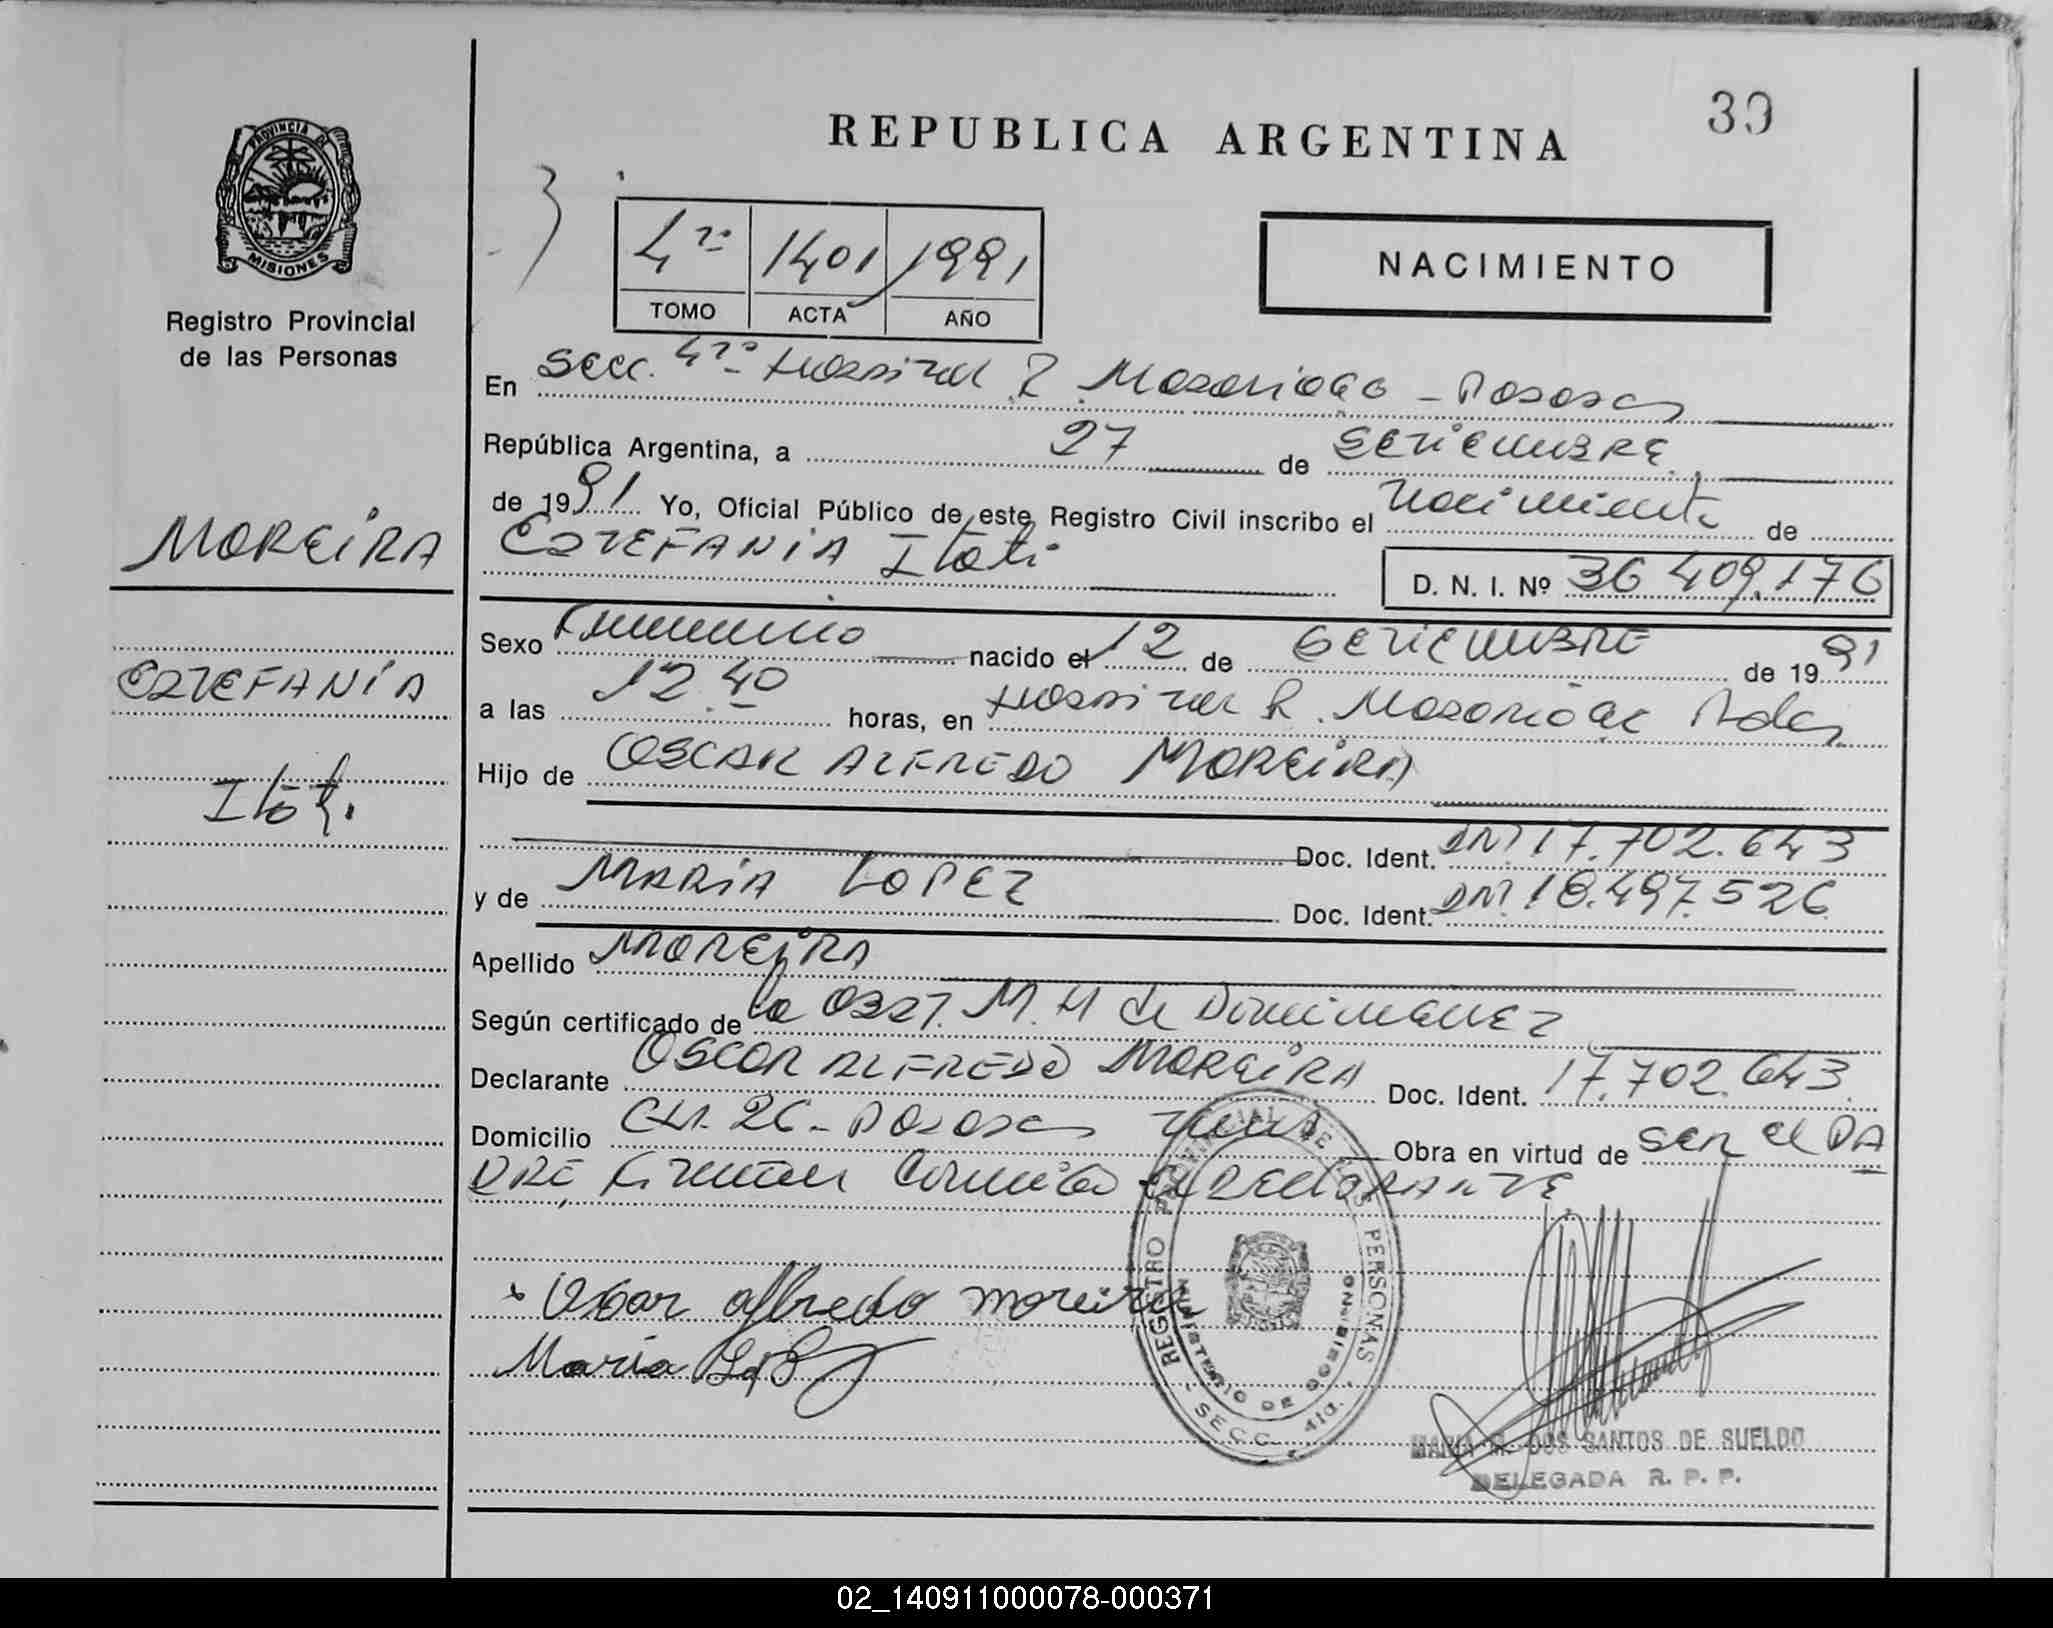 39
REPUBLICA ARGENTINA
PROVINCIA DE
MISIONES
Registro Provincial
de las Personas
4ta 1401 1991
TOMO ACTA AÑO
NACIMIENTO
En Secc. 4ta Hospital R. Madariaga - Posadas
República Argentina, a 27 de SETIEMBRE
de 1991 Yo, Oficial Público de este Registro Civil inscribo el nacimiento de
ESTEFANIA Itati D. N. I. Nº 36 409.176
MOREIRA
ESTEFANÍA
Itati
Sexo Femenino nacido el 12 de SETIEMBRE de 1991
a las 12.40 horas, en Hospital R. Madariaga Pdas
Hijo de OSCAR ALFREDO MOREIRA
Doc. Ident. DNI 17.702.643
y de MARIA LOPEZ Doc. Ident. DNI 18.497.526
Apellido MOREIRA
Según certificado de la Obst. M. H de DOMINGUEZ
Declarante OSCAR ALFREDO MOREIRA Doc. Ident. 17.702.643
Domicilio CH. 26 - Posadas Obra en virtud de SER el PA
DRE, Firman el DECLARANTE
Oscar alfredo moreira
Maria
REGISTRO PROVINCIAL DE LAS PERSONAS
MINISTERIO DE GOBIERNO
SECC. 4ta.
MARIA DOS SANTOS DE SUELDO
DELEGADA R. P. P.
02_140911000078-000371